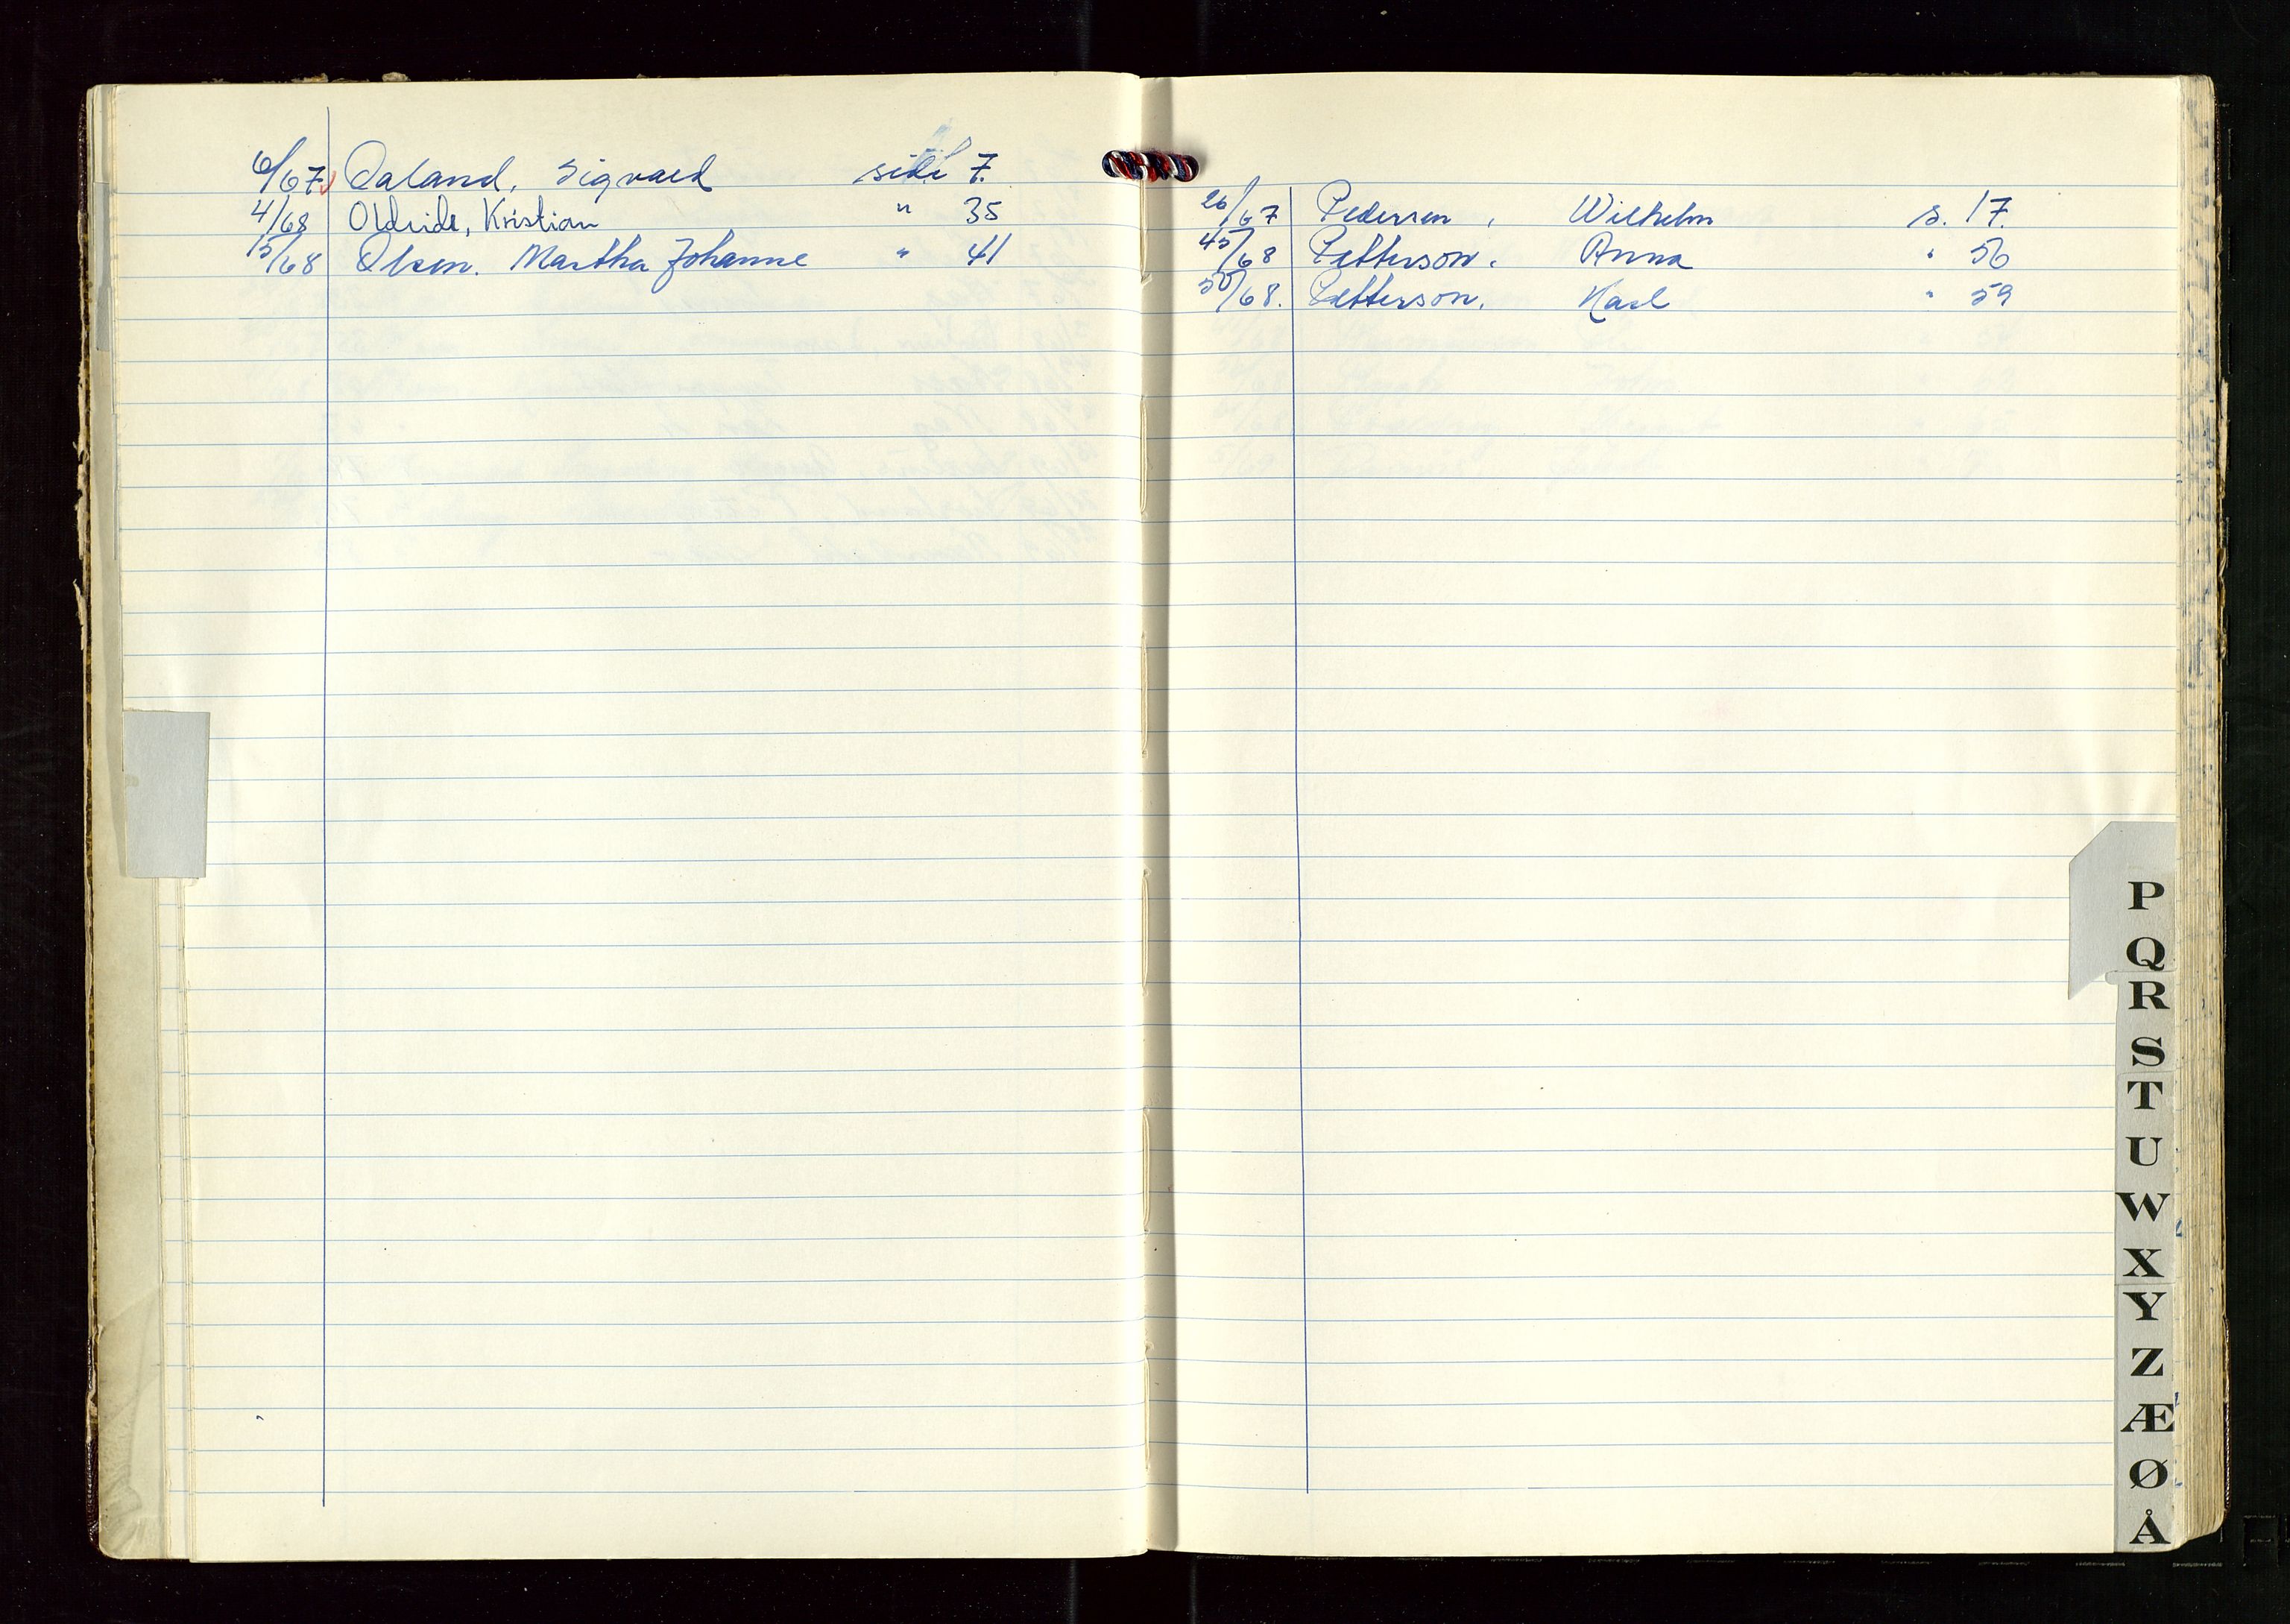 6/67 Oaland, Sigvald side 7.
4/68 Oldeide, Kristian " 35
15/68 Olsen. Martha Johanne " 41
26/67 Pedersen, Wilhelm s. 17.
45/68 Patterson, Anna " 56
50/68. Patterson, Karl " 59
P
Q
R
S
T
U
W
X
Y
Z
Æ
Ø
Å